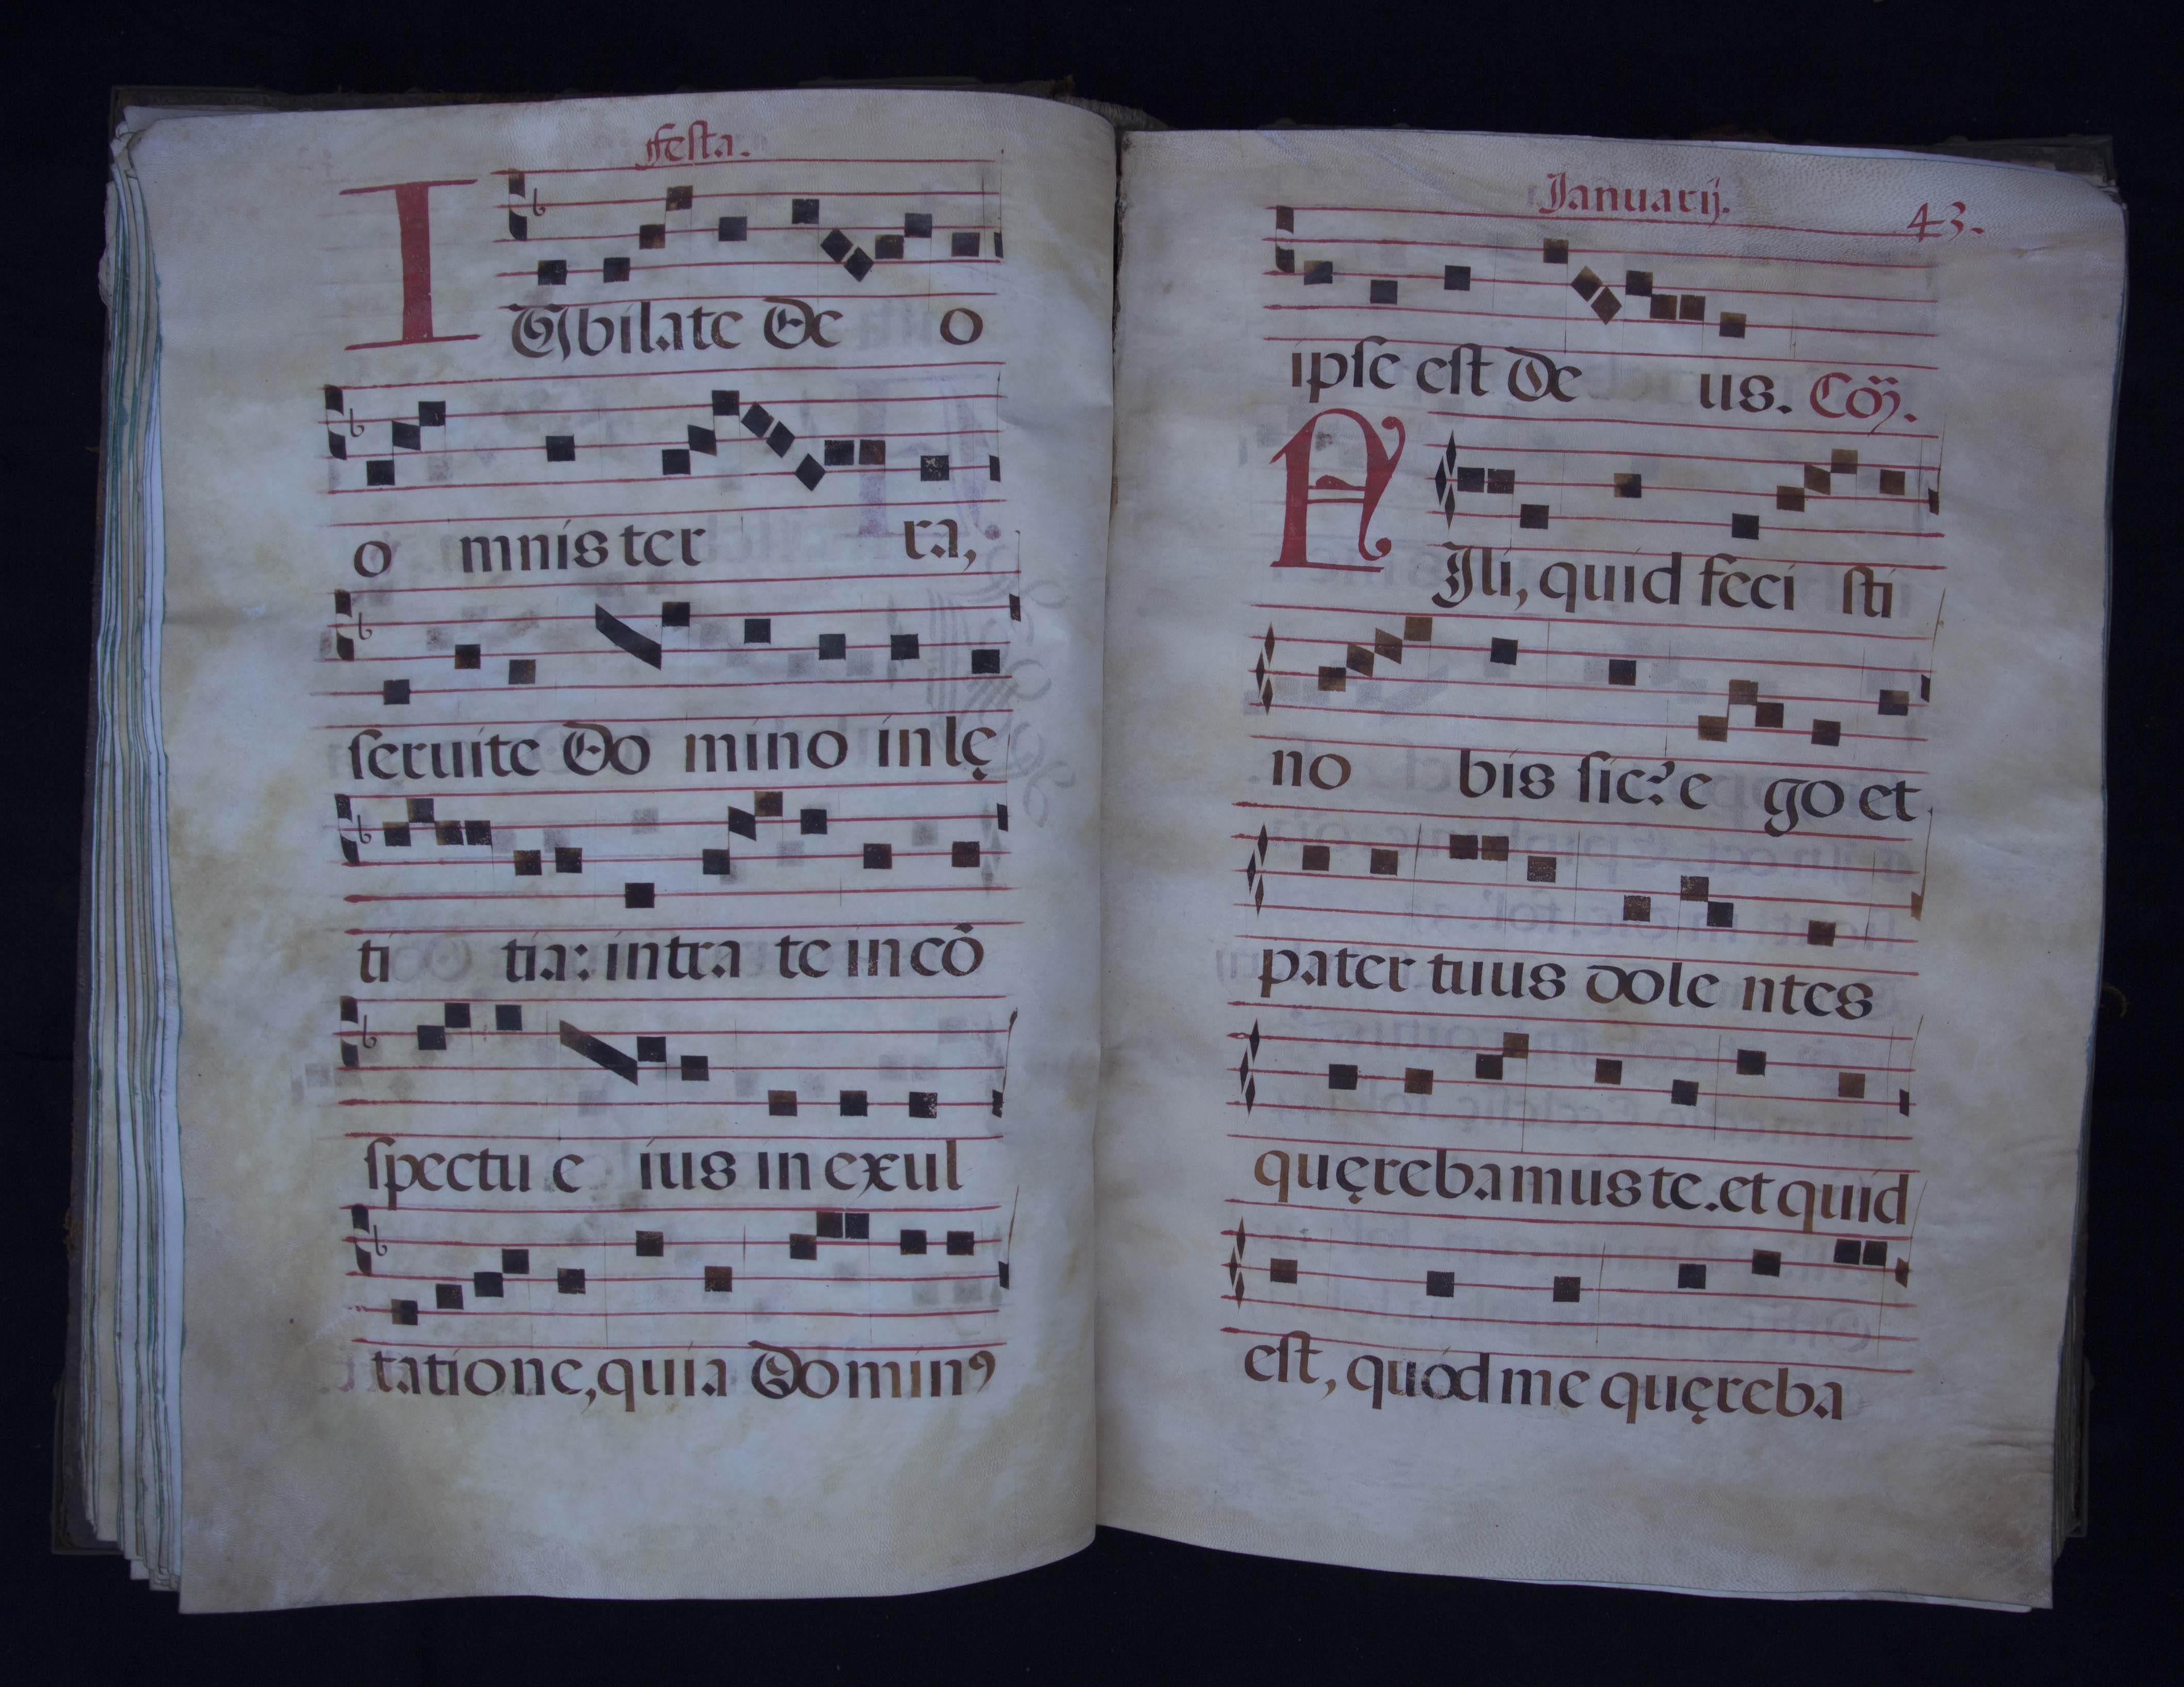 Festa.
IVbilate Deo
omnis terra,
ſeruite Domino in lę
titia: intrate in cō
ſpectu eius in exul
tatione, quia Dominꝰ
Januarij. 43.
ipſe eſt Deus. Cōȝ.
FIli, quid feciſti
nobis ſic? ego et
pater tuus dolentes
quęrebamus te. et quid
eſt, quòd me quęreba